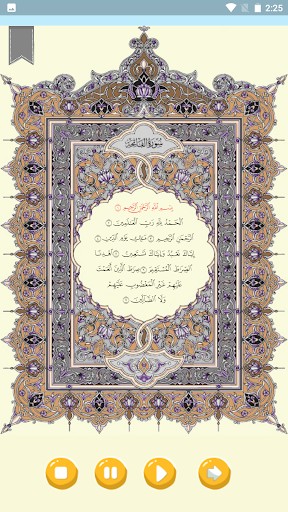 2:25
سورة الفاتحة
بسم الله الرحمن الرحيم ۝١
الحمد لله رب العالمين ۝٢
الرحمن الرحيم ۝٣ مالك يوم الدين ۝٤
إياك نعبد وإياك نستعين ۝٥ اهدنا
الصراط المستقيم ۝٦ صراط الذين أنعمت
عليهم غير المغضوب عليهم
ولا الضالين ۝٧